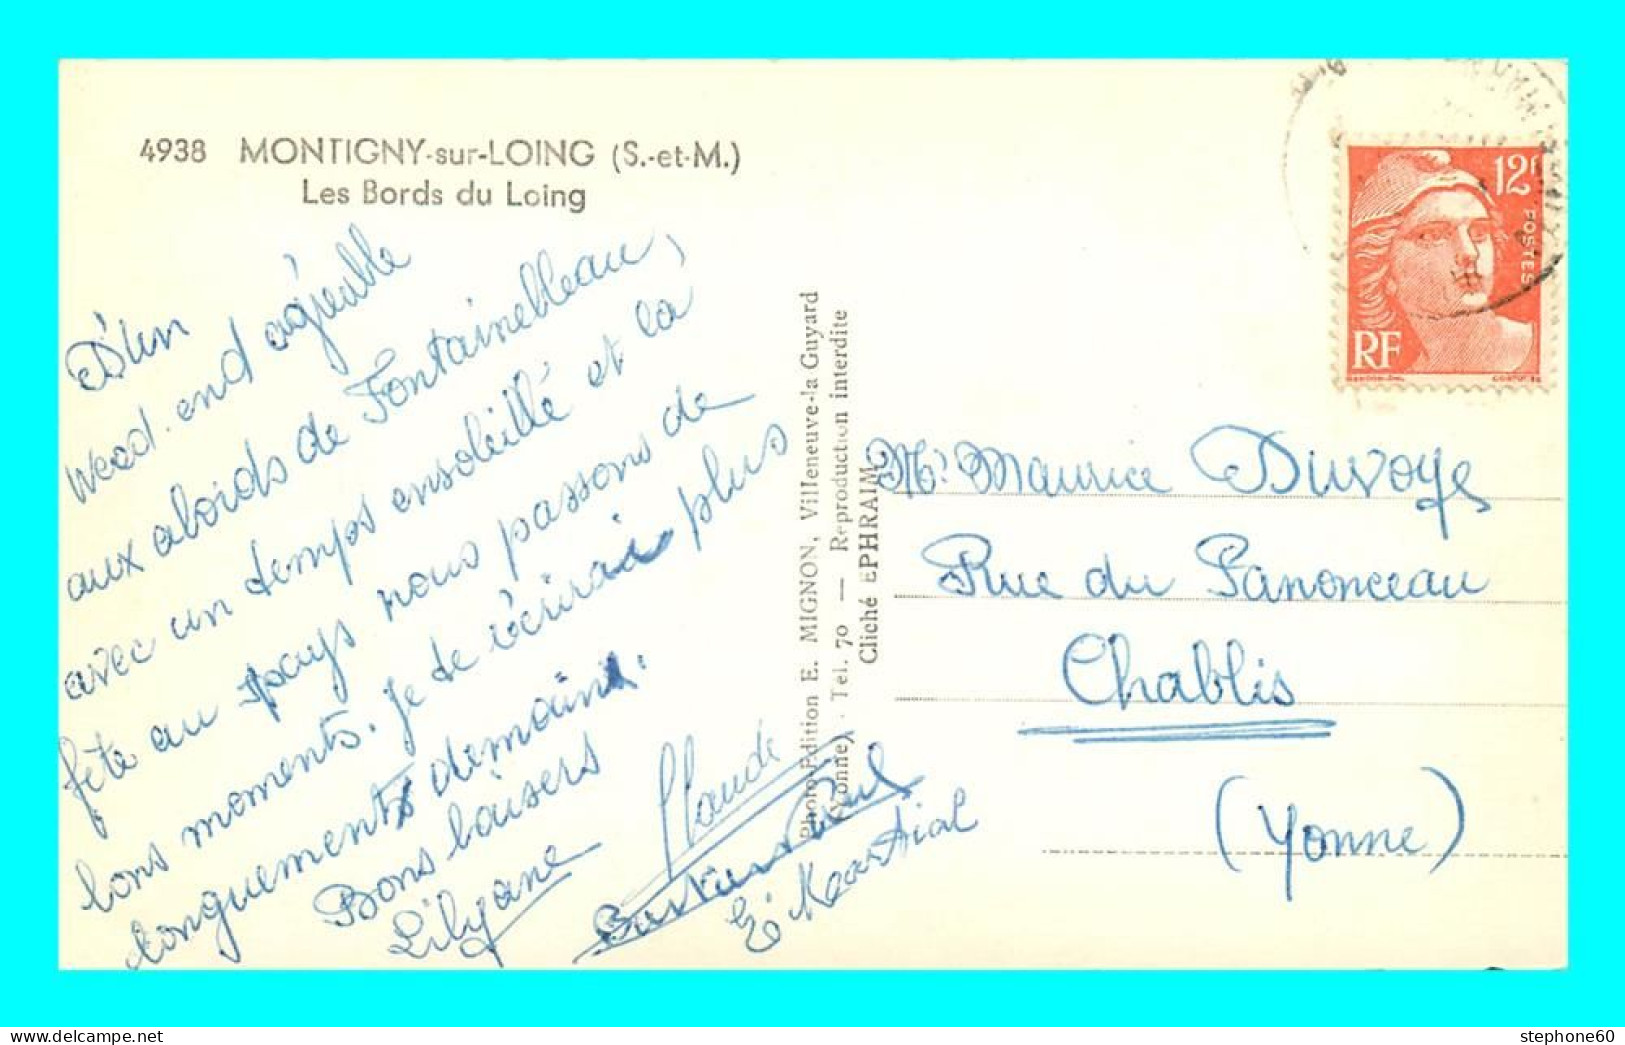 4938 MONTIGNY-sur-LOING (S.-et-M.)
Les Bords du Loing
D'un
weed.end agréable
aux abords de Fontainebleau,
avec un temps ensoleillé et la
fête au pays nous passons de
bons moments. je te écrirai plus
longuement demain.
Bons baisers
Lilyane
Claude
E. Martial
Photo-Edition E. MIGNON, Villeneuve-la Guyard
(Yonne). Tél. 70 — Reproduction interdite
Cliché EPHRAIM
12f
POSTES
RF
Mr. Maurice Duvoye
Rue du Panonceau
Chablis
(Yonne)
stephone60